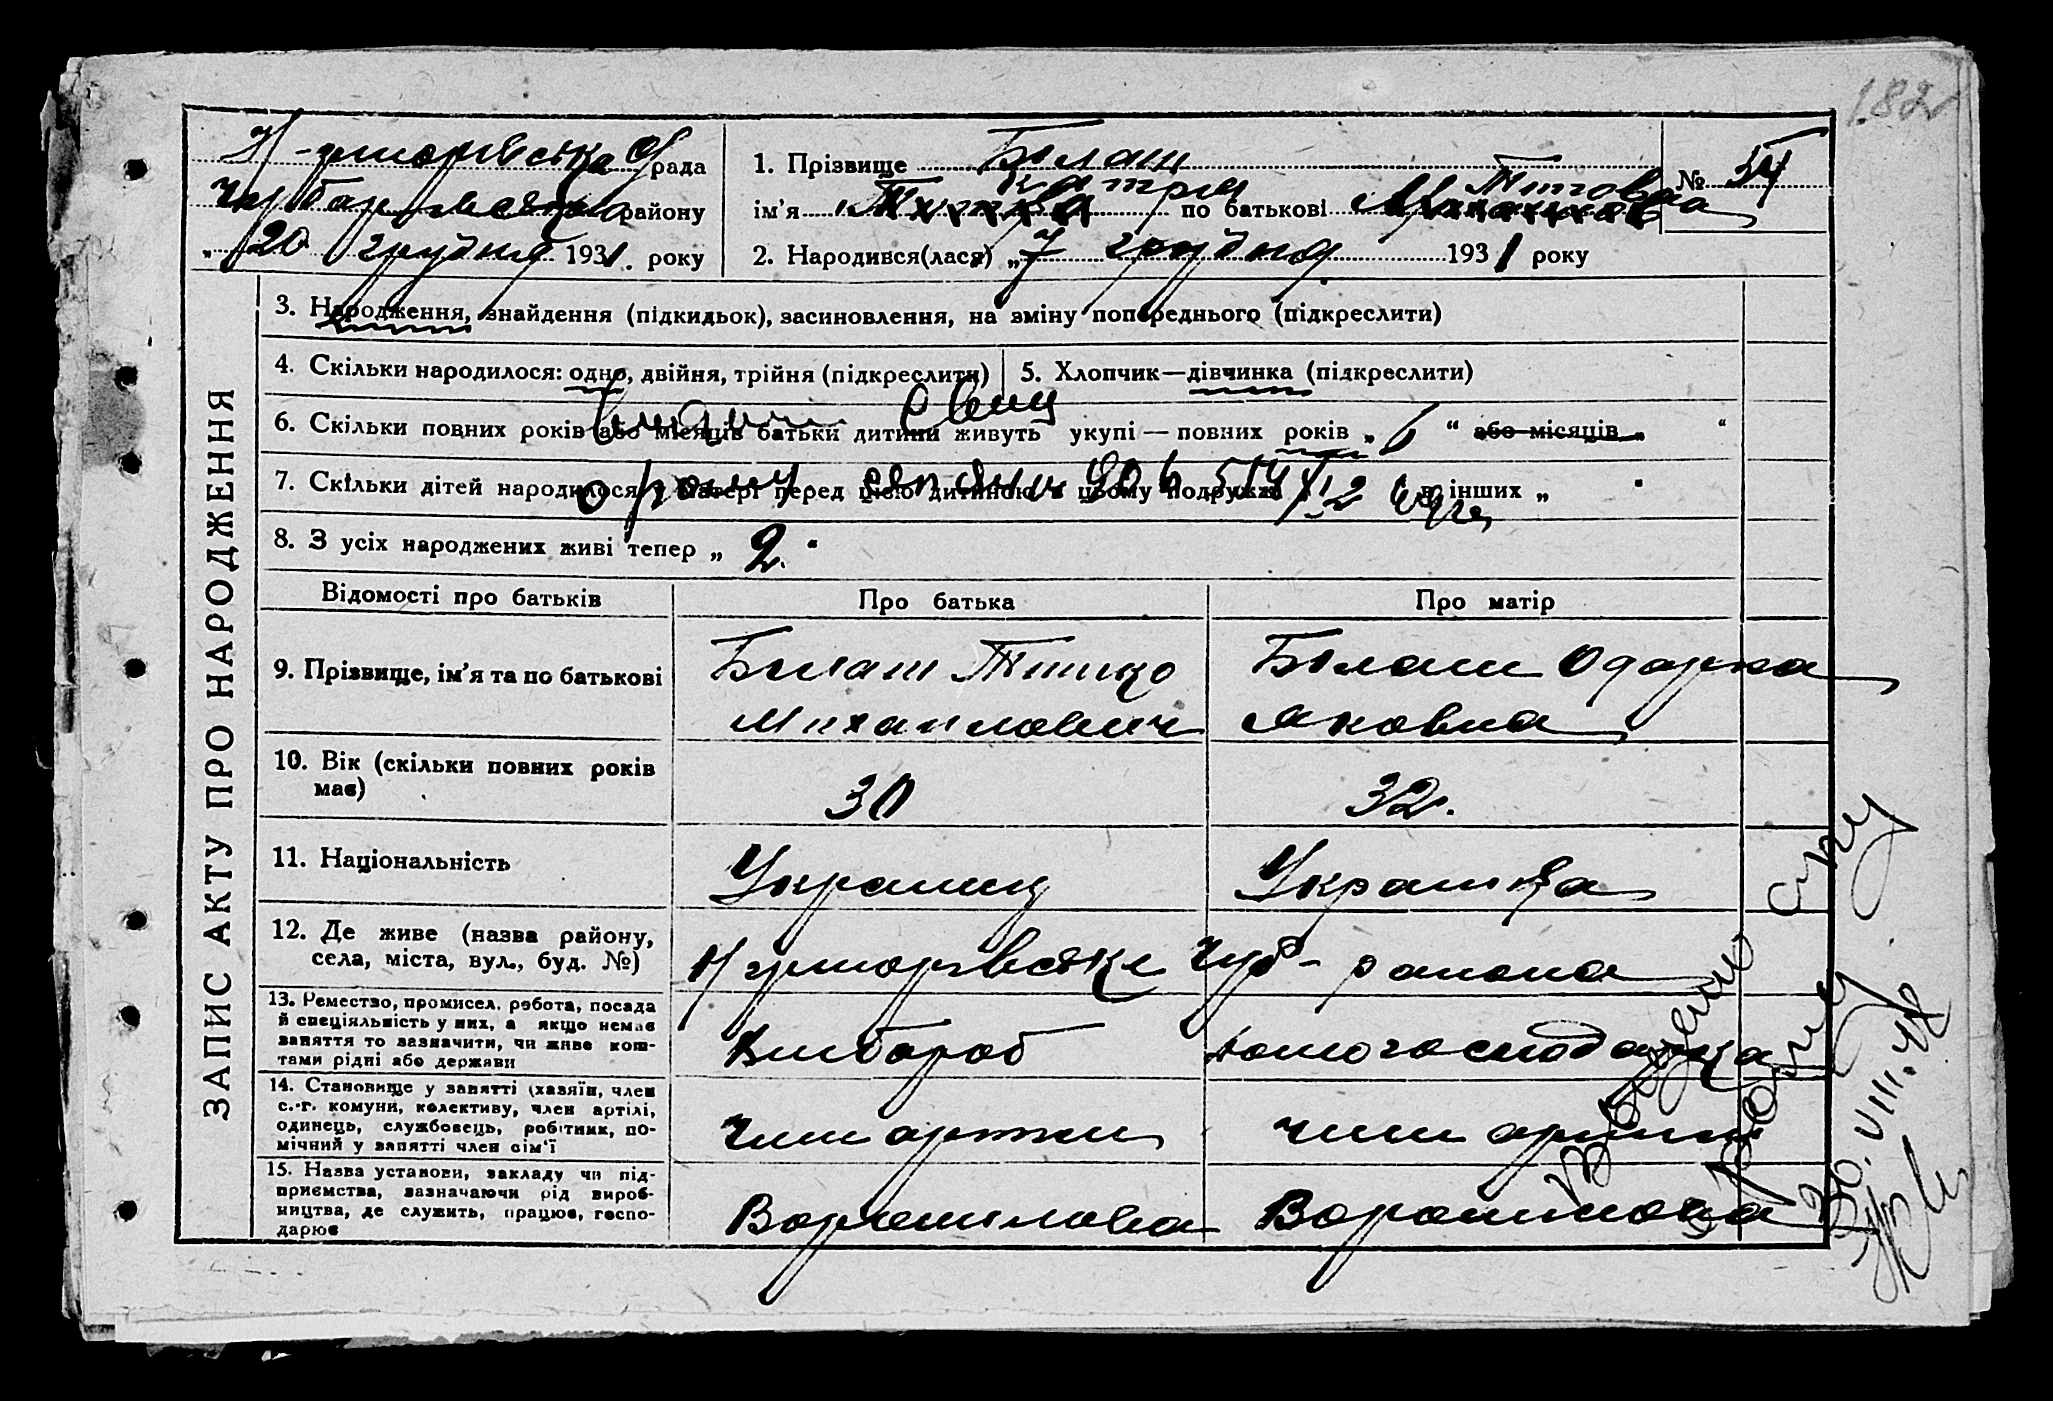 182
рада
1. Прізвище Білаш
№ 54
Чубарівська району
Катря
Тітовна
ім'я по батькові
„20 грудня 1931. року
2. Народився(лася) „7 грудня 1931 року
ЗАПИС АКТУ ПРО НАРОДЖЕННЯ
3. Народження, знайдення (підкидьок), засиновлення, на зміну попереднього (підкреслити)
4. Скільки народилося: одно, двійня, трійня (підкреслити)
5. Хлопчик—дівчинка (підкреслити)
6. Скільки повних років або місяців батьки дитини живуть укупі — повних років „ 6 “ або місяців „ “
7. Скільки дітей народилося у матері перед цією дитиною в цьому подружжі 2 в інших „
8. З усіх народжених живі тепер „ 2 “
Відомості про батьків
Про батька
Про матір
9. Прізвище, ім'я та по батькові
Білаш Тітко
Михайлович
Білаш Одарка
Яковна
10. Вік (скільки повних років
має)
30
32.
11. Національність
Українец
Українка
12. Де живе (назва району,
села, міста, вул., буд. №)
Чуб - района
13. Ремество, промисел, робота, посада
й спеціяльність у них, а якщо немає
заняття то зазначити, чи живе кош-
тами рідні або держави
Хлібороб
домогосподарка
14. Становище у занятті (хазяїн, член
с.-г. комуни, колективу, член артілі,
одинець, службовець, робітник, по-
мічний у занятті член сім'ї
Член артили
член артили
15. Назва установи, закладу чи під-
приємства, зазначаючи рід вироб-
ництва, де служить, працює, госпо-
дарює
Ворошилова
Ворошилова
30.VIII.48